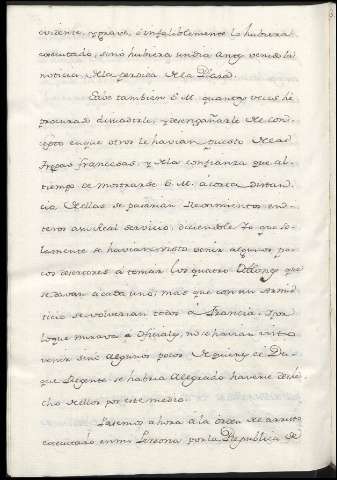 evidente, y grave, è infaliblemente lo hubiera
executado, sino hubiera un dia antes venido la
noticia de la perdida de la Plaza.
Sabe tambien S. M. quantas veces hè
procurado disuadirle, y desengañarle del con-
cepto en que otros le havian puesto de las
Tropas francesas, y de la confianza que al
tiempo de mostrarse S. M. à corta distan-
cia de ellas se pasarian Regimientos en-
teros a su Real servicio, diciendole Yo que so-
lamente se havian visto venir algunos po-
cos desertores à tomar los quatro Doblones que
se daban à cada uno; mas que con un Armis-
ticio se volverian todos à Francia, y por
lo que mirava à oficiales, no se havian visto
venir sino algunos pocos de quienes el Du-
que Regente se habria alegrado haverse desha-
cho de ellos por este medio.
Pasemos ahora à la órden de arresto
executado en mi Persona por la Republica de